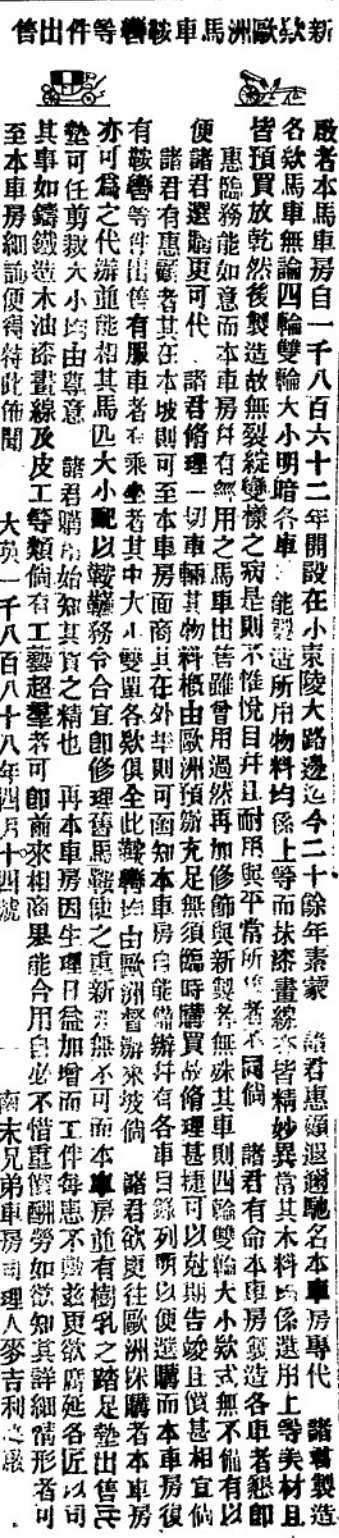 新欵歐洲馬車鞍轡等件出售
啟者本馬車房自一千八百六十二年開設在小東陵大路邊迄今二十餘年素蒙 諸君惠顧遐邇馳名本車房專代 諸君製造
各欵馬車無論四輪雙輪大小明暗各車 能製造所用物料均係上等而抹漆畫線亦皆精妙異常其木料均係選用上等美材且
皆預買放乾然後製造故無裂綻變樣之病是則不惟悅目幷且耐用與平常所 者不同倘 諸君有命本車房製造各車者懇即
惠臨務能如意而本車房幷有經用之馬車出售雖曾用過然再加修飾與新製者無殊其車則四輪雙輪大小欵式無不備有以
便諸君選購更可代 諸君脩理一切車輛其物料概由歐洲預辦充足無須臨時購買故脩理甚捷可以尅期告竣且價甚相宜倘
諸君有惠顧者其在本坡則可至本車房面商其在外埠則可函知本車房自能備辦幷有各車目錄列明以便選購而本車房復
有鞍轡等件出售有服車者有乘坐者其中大小雙單各欵俱全此鞍轡均由歐洲督辦來坡倘 諸君欲更往歐洲採購者本車房
亦可為之代辦並能相其馬匹大小配以鞍韉務令合宜即修理舊馬鞍使之重新 無不可而本車房並有樹乳之踏足墊出售
墊可任剪裁大小均由尊意 諸君購用始知其貨之精也 再本車房因生理日益加增而工件每患不敷茲更欲廣延各匠以司
其事如鑄鐵造木油漆畫線及皮工等類倘有工藝超羣者可即前來相商果能合用自必不惜重價酬勞如欲知其詳細情形者可
至本車房細詢便得特此佈聞 大英一千八百八十八年四月十四號 南末兄弟車房司理人麥吉利 啟